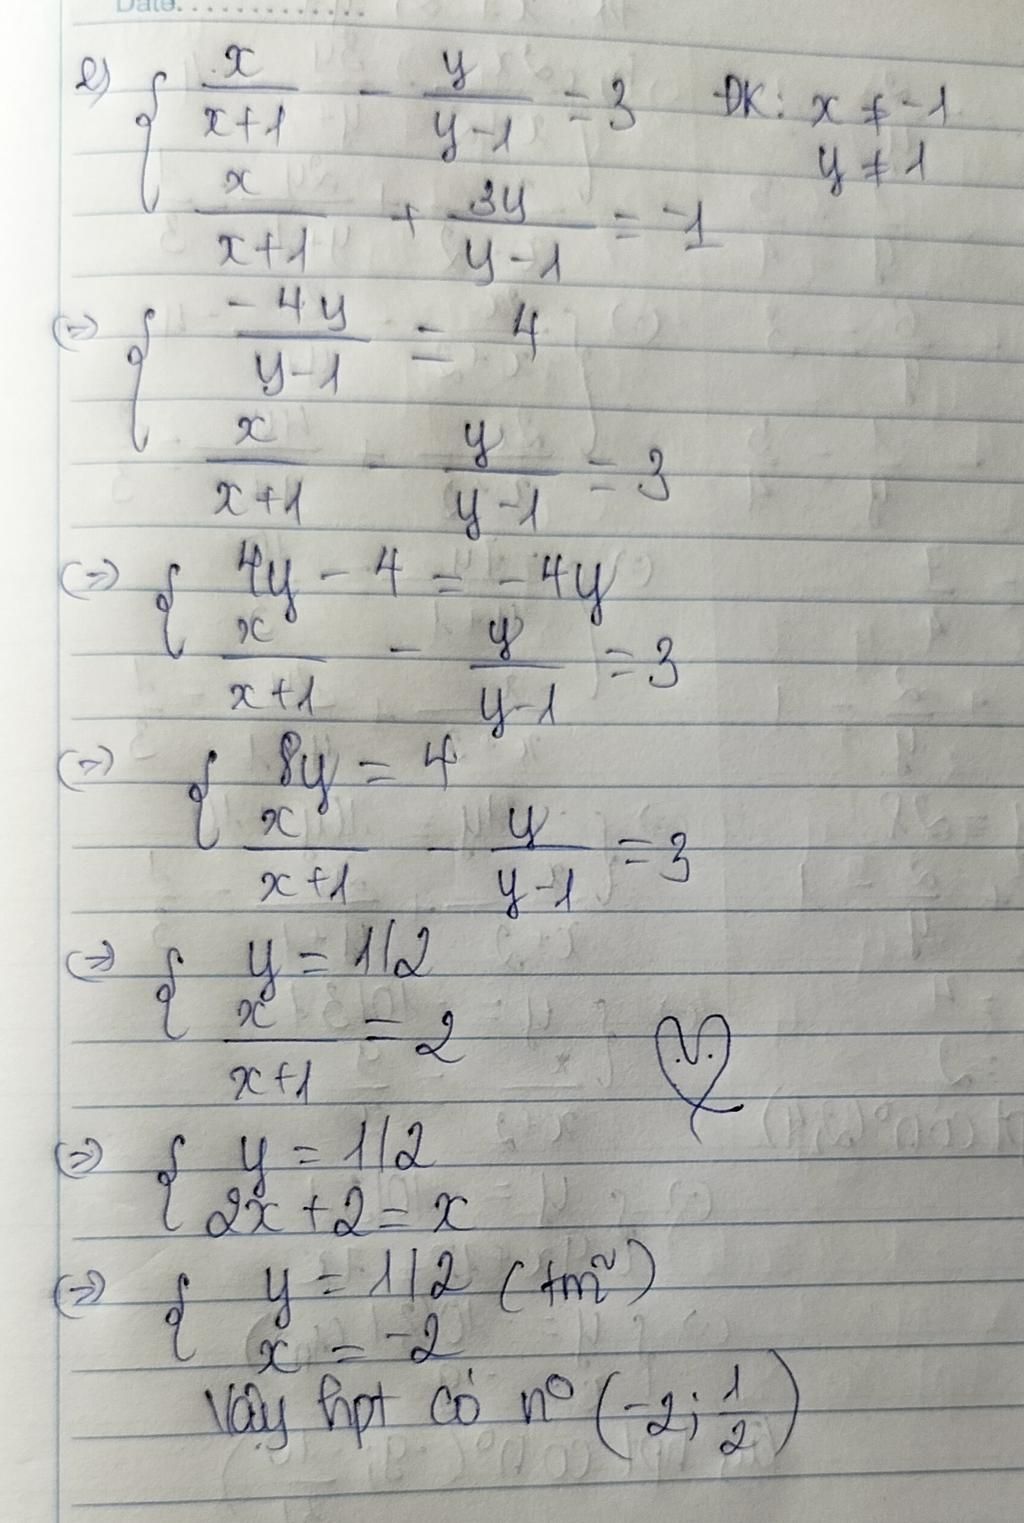 Date.............
2) { x/(x+1) - y/(y-1) = 3 ĐK: x ≠ -1
y ≠ 1
x/(x+1) + 3y/(y-1) = -1
(=) { -4y/(y-1) = 4
x/(x+1) - y/(y-1) = 3
(=) { 4y - 4 = -4y
x/(x+1) - y/(y-1) = 3
(=) { 8y = 4
x/(x+1) - y/(y-1) = 3
(=) { y = 1/2
x/(x+1) = 2
(=) { y = 1/2
2x + 2 = x
(=) { y = 1/2 (tm²)
x = -2
Vậy hpt có nº (-2; 1/2)